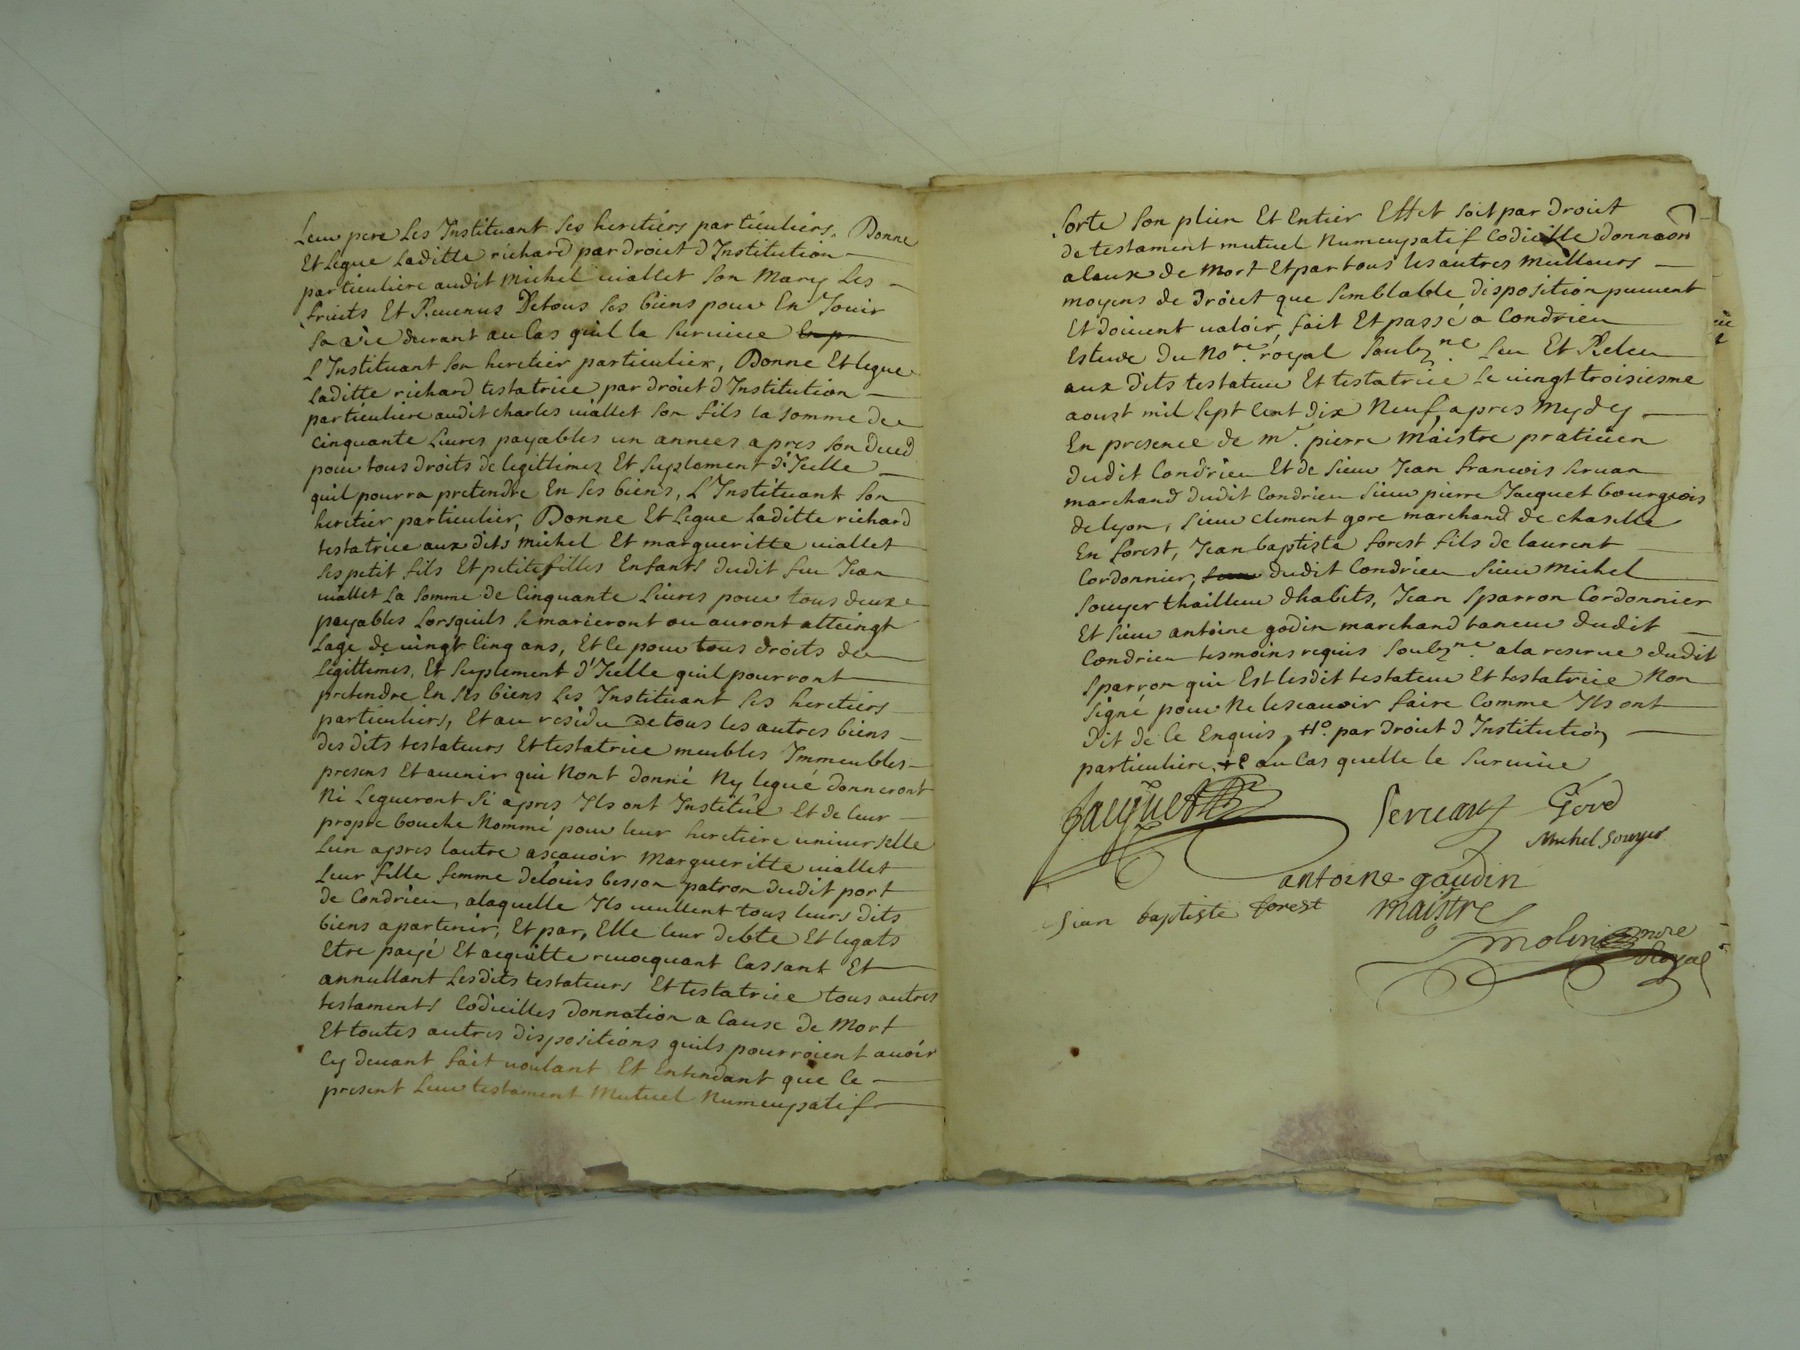 Leur pere Les Instituant ses heretiers particuliers. Donne
Et Legue Laditte richard par droit d Institution
particuliere audit michel uiallet son Mary Les
fruits Et Reuenus De tous ses biens pour En Jouir
sa vie durant au Cas quil la suruiue
L'Instituant son heretier particulier, Donne Et legue
Laditte richard testatrice par droit d Institution
particuliere audit charles uiallet son fils la somme de
cinquante Liures payables un annees apres son deced
pour tous droits de legittimes Et suplement d'Icelle
quil pourra pretendre En ses biens, L'Instituant son
heretier particulier, Donne Et Legue Laditte richard
testatrice aux dits michel Et margueritte uiallet
ses petit fils Et petite filles Enfants dudit feu Jean
uiallet La somme de Cinquante Liures pour tous deux
payables Lorsquils se marieront ou auront atteingt
Lage de uingt Cinq ans, Et Ce pour tous droits de
Legittimes, Et suplement d'Icelle quil pourront
pretendre En ses biens Les Instituant ses heretiers
particuliers, Et au residu De tous les autres biens
des dits testateurs Et testatrice meubles Immeubles
presens Et auenir qui Nont donné Ny legué donneront
Ni Legueront si apres Ils ont Institué Et de leur
propre bouche Nommé pour leur heretiere uniuerselle
Lun apres lautre ascauoir Margueritte uiallet
Leur fille femme de louis besson patron dudit port
de Condrieu, alaquelle Ils ueullent tous leurs dits
biens apartenir, Et par, Elle leur debte Et legats
Etre payé Et acquitte reuocquant Cassant Et
annullant Lesdits testateurs Et testatrice tous autres
testaments Codicilles donnation a Cause de Mort
Et toutes autres dispositions quils pourroient auoir
Cy deuant fait uoulant Et Entendant que le
present Leur testament Mutuel Numcupatif
sorte son plein Et Entier Effet soit par droit
de testament mutuel Numcupatif Codicille donnaon
a Cause de Mort Et par tous les autres meilleurs
moyens de droit que semblable disposition peuuent
Et doiuent ualoir, fait Et passé a Condrieu
Estude du No.re royal soubz.ne Leu Et Releu
aux dits testateur Et testatrice Le uingt troisiesme
aoust mil sept Cent dix Neuf apres Mydy
En presence de m.e pierre Maistre praticien
dudit Condrieu Et de sieur Jean francois seruan
marchand dudit Condrieu sieur pierre Jacquet bourgeois
de lyon, sieur clement gore marchand de chaselle
En forest, Jean baptiste forest fils de laurent
Cordonnier, dudit Condrieu sieur Michel
souyer thailleur dhabits, Jean sparron Cordonnier
Et sieur antoine godin marchand taneur dudit
Condrieu tesmoins requis soubz.ne ala reserue dudit
sparron qui Est lesdit testateur Et testatrice Non
signé pour Ne lescauoir faire Comme Ils ont
dit de Ce Enquis, par droit d Institution
particuliere, au Cas quelle le suruiue
Jacquet Seruan Gord
Michel Souyer
antoine gaudin
Jean baptiste forest maistre
Molin nore
Royal